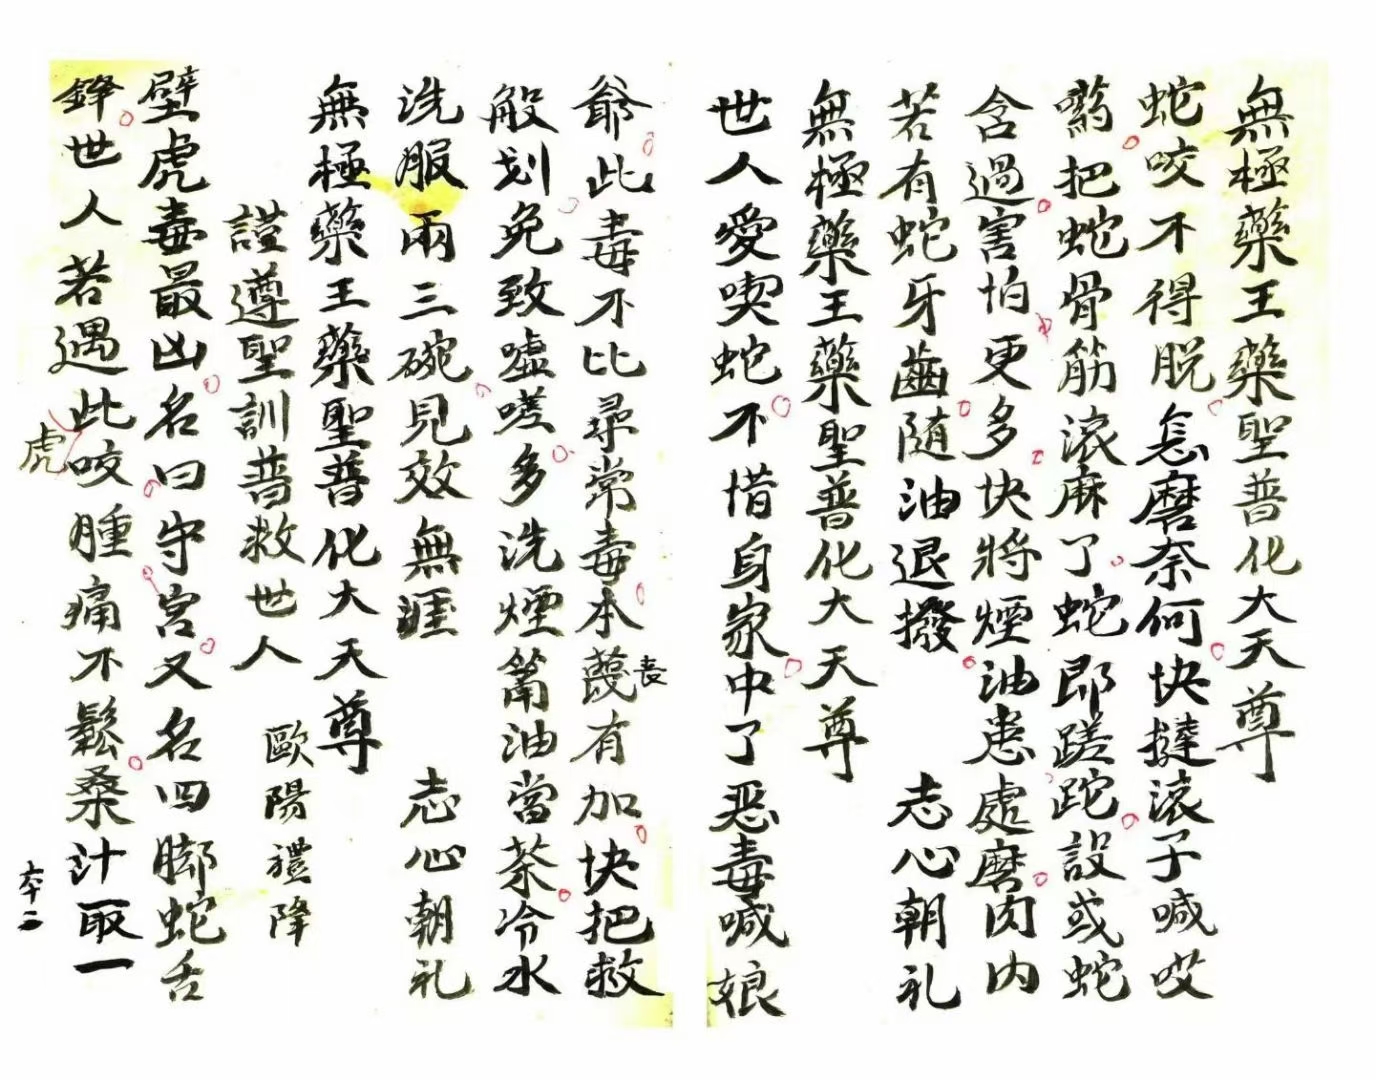 無極藥王藥聖普化大天尊
蛇咬不得脫怎磨奈何快撻滾子喊哎
藥把蛇骨筋滾麻了蛇即蹉跎設或蛇
含過害怕更多快將煙油患處磨肉内
若有蛇牙齒隨油退撥 志心朝礼
無極藥王藥聖普化大天尊
世人愛喫蛇不惜身家中了恶毒喊娘
爺此毒不比尋常毒本有加快把救
般划免致噓嗟多洗煙筩油當茶冷水
洗服兩三碗見效無涯 志心朝礼
無極藥王藥聖普化大天尊
謹遵聖訓普救世人 歐陽禮降
壁虎毒最凶名曰守宮又名四脚蛇舌
鋒世人若遇此咬腫痛不鬆桑汁取一
虎
六十二